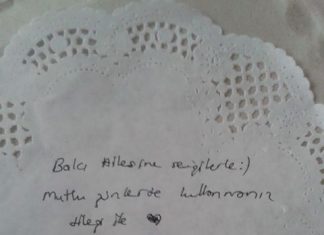 Balcı Ailesine sevgilerle :)
Mutlu günlerde kullanmanız
dileği ile ♥